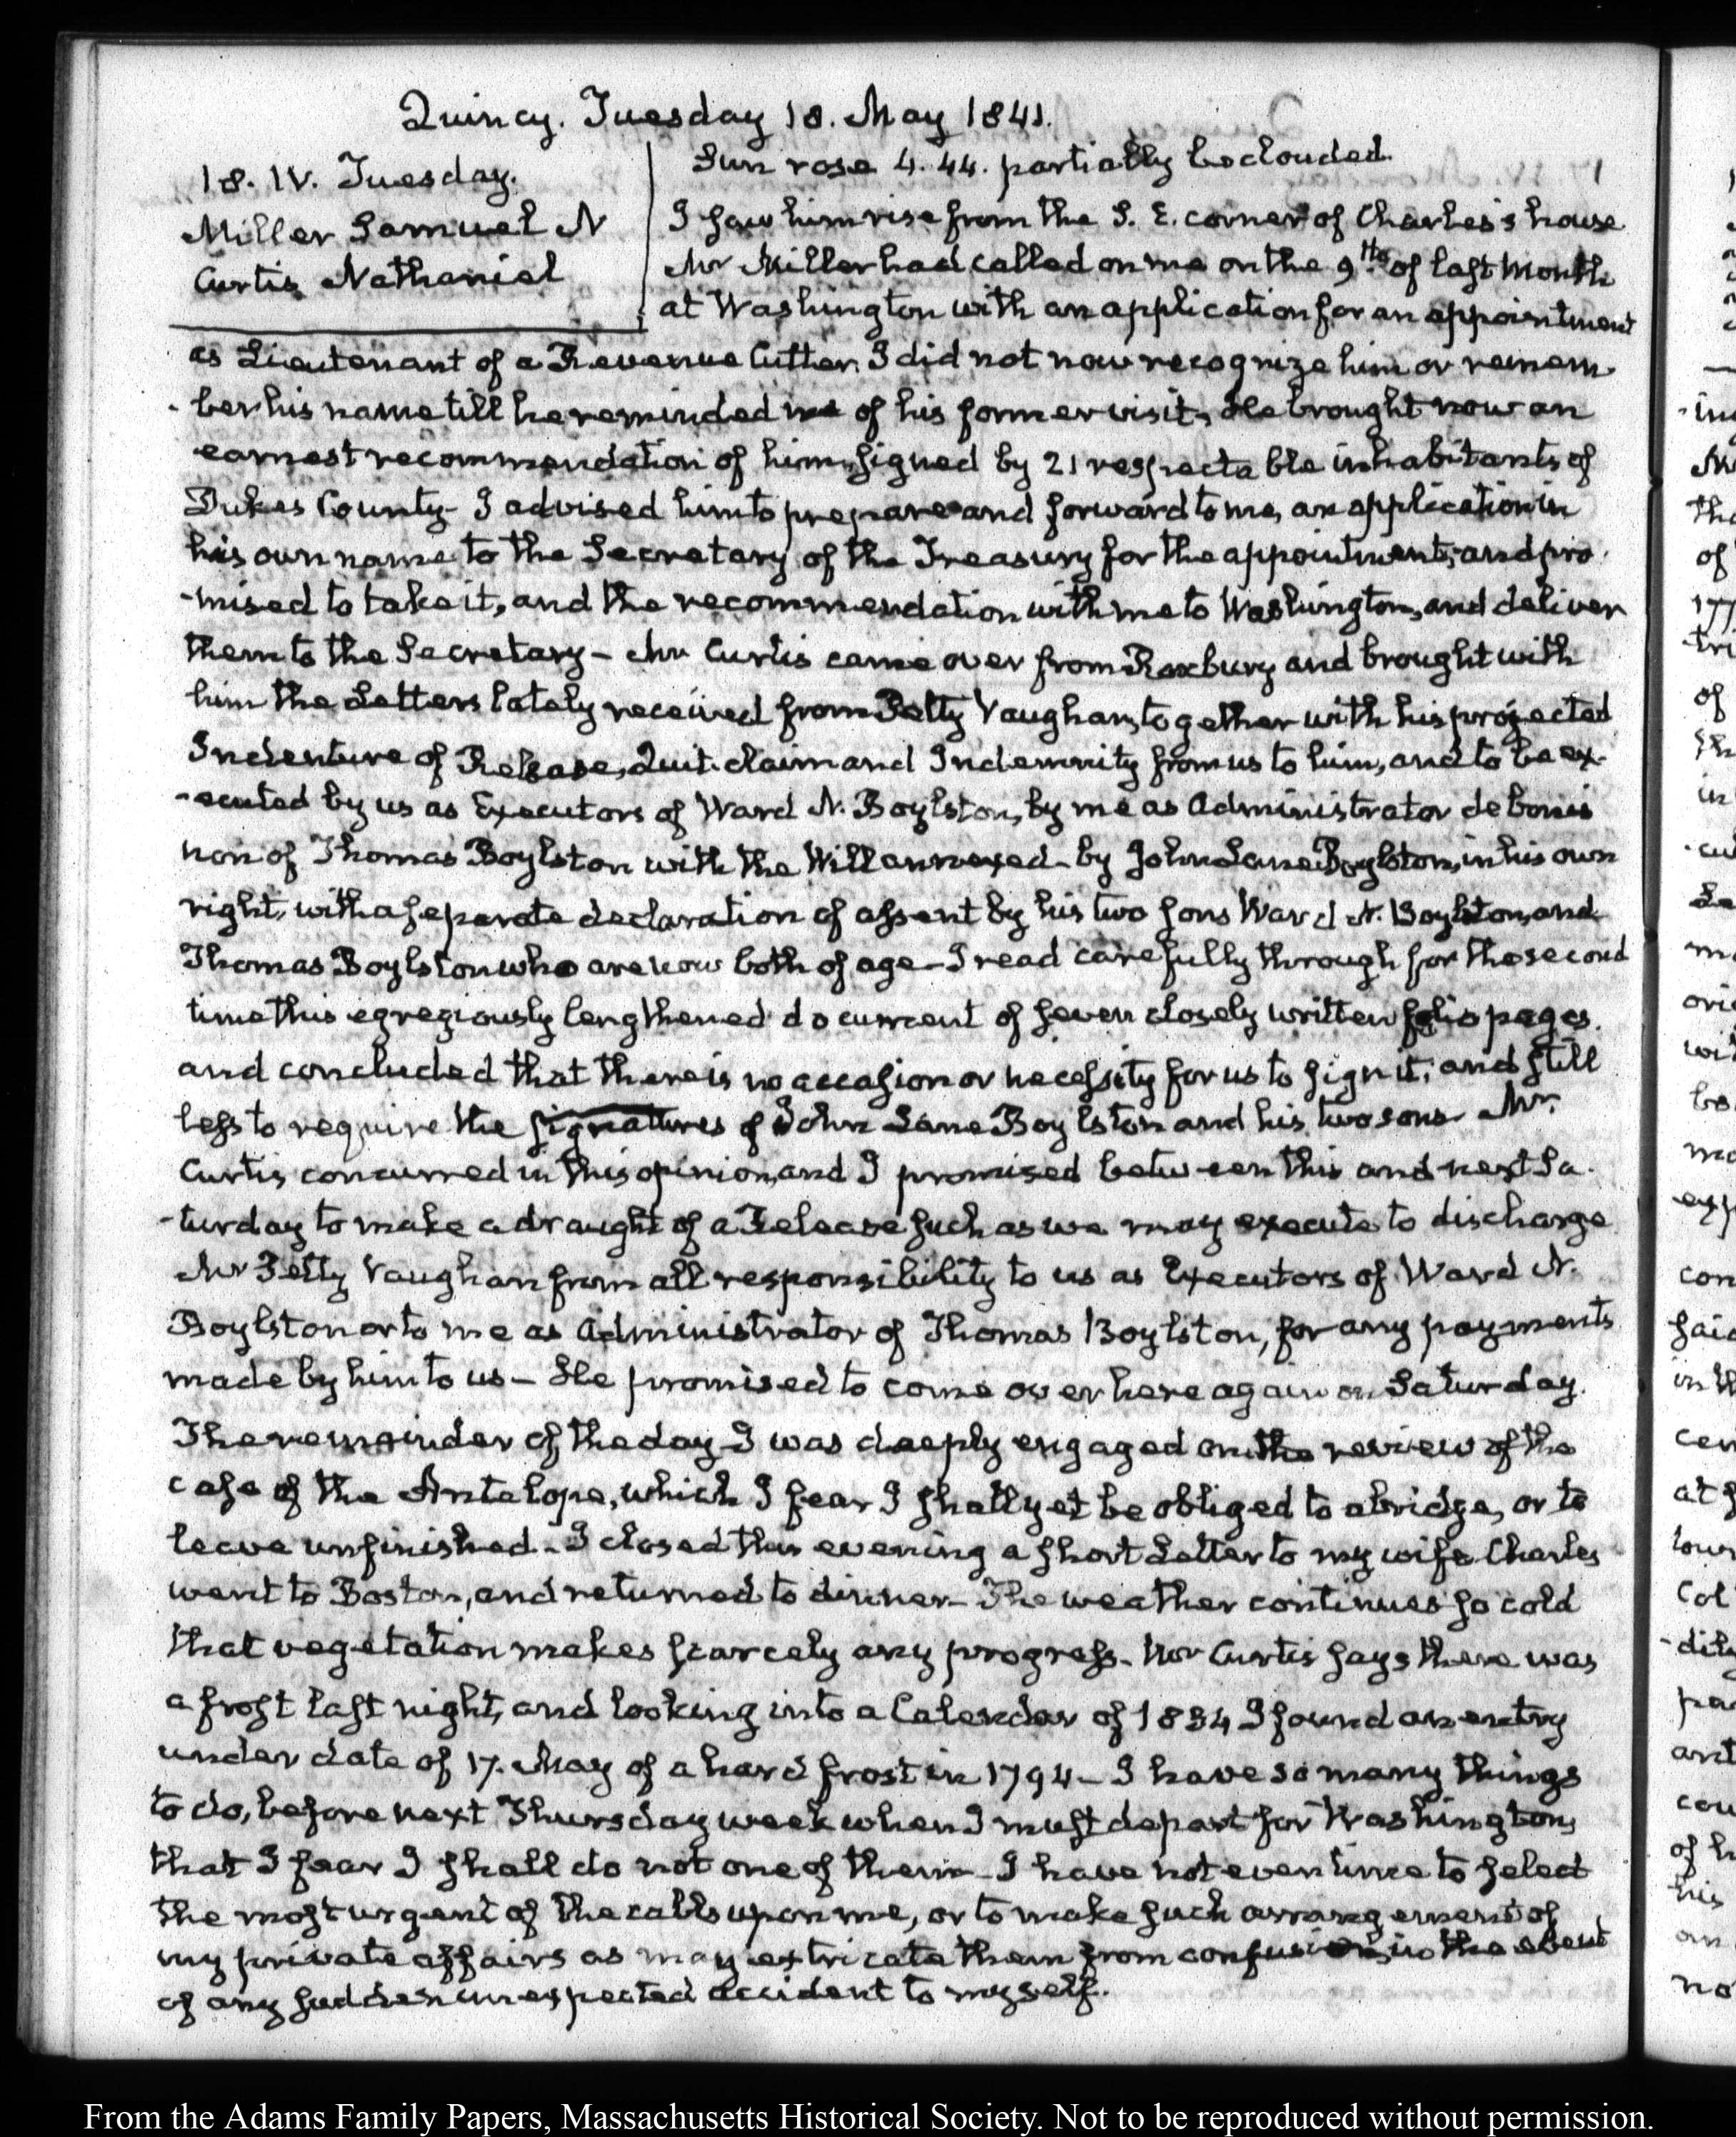 Quincy. Tuesday 18. May 1841.
18. IV. Tuesday.
Miller Samuel N
Curtis Nathaniel
Sun rose 4. 44. partially beclouded.
I saw him rise from the S. E. corner of Charles's house
Mr Miller had called on me on the 9th of last Month
at Washington with an application for an appointment
as Lieutenant of a Revenue Cutter, I did not now recognize him or remem
-ber his name till he reminded me of his former visit, He brought now an
earnest recommendation of him, signed by 21 respectable inhabitants of
Dukes County- I advised him to prepare and forward to me, an application in
his own name to the Secretary of the Treasury for the appointment, and pro
-mised to take it, and the recommendation with me to Washington, and deliver
them to the Secretary – Mr Curtis came over from Roxbury and brought with
him the Letters lately received from Petty Vaughan, together with his projected
Indenture of Release, Quit-claim and Indemnity from us to him, and to be ex-
-ecuted by us as Executors of Ward N. Boylston, by me as Administrator de bonis
non of Thomas Boylston with the Will annexed - by John Lane Boylston, in his own
right, with a separate declaration of assent by his two sons Ward N. Boylston, and
Thomas Boylston who are now both of age - I read carefully through for the second
time this egregiously lengthened document of seven closely written folio pages.
and concluded that there is no occasion or necessity for us to sign it; and still
less to require the signatures of John Lane Boylston and his two sons Mr.
Curtis concurred in this opinion, and I promised between this and next Sa-
-turday to make a draught of a Release such as we may execute to discharge
Mr Petty Vaughan from all responsibility to us as Executors of Ward N.
Boylston or to me as Administrator of Thomas Boylston, for any payments
made by him to us – He promised to come over here again on Saturday.
The remainder of the day I was deeply engaged on the review of the
case of the Antelope, which I fear I shall yet be obliged to abridge, or to
leave unfinished - I closed this evening a short Letter to my wife Charles
went to Boston, and returned to dinner - The weather continues so cold
that vegetation makes scarcely any progress - Mr Curtis says there was
a frost last night, and looking into a Calendar of 1834 I found an entry
under date of 17. May of a hard frost in 1794 – I have so many things
to do, before next Thursday week when I must depart for Washington,
that I fear I shall do not one of them - I have not even time to select
the most urgent of the calls upon me, or to make such arrangement of
my private affairs as may extricate them from confusion, in the event
of any sudden unexpected accident to myself.
From the Adams Family Papers, Massachusetts Historical Society. Not to be reproduced without permission.